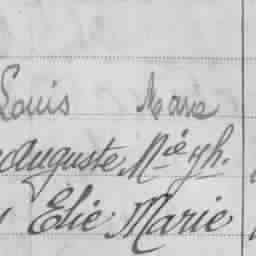 Louis Marie
Auguste Mie Jh.
Elie Marie